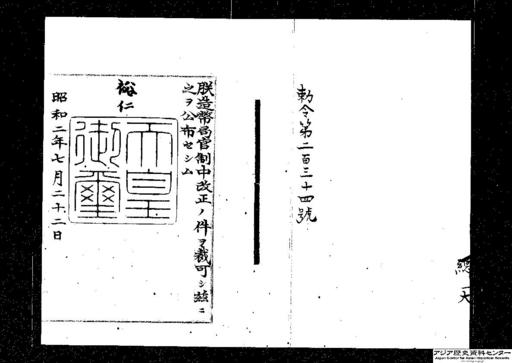 勅令第二百三十四號
朕造幣局官制中改正ノ件ヲ裁可シ玆ニ
之ヲ公布セシム
裕仁
天皇
御璽
昭和二年七月二十二日
アジア歴史資料センター
Japan Center for Asian Historical Records